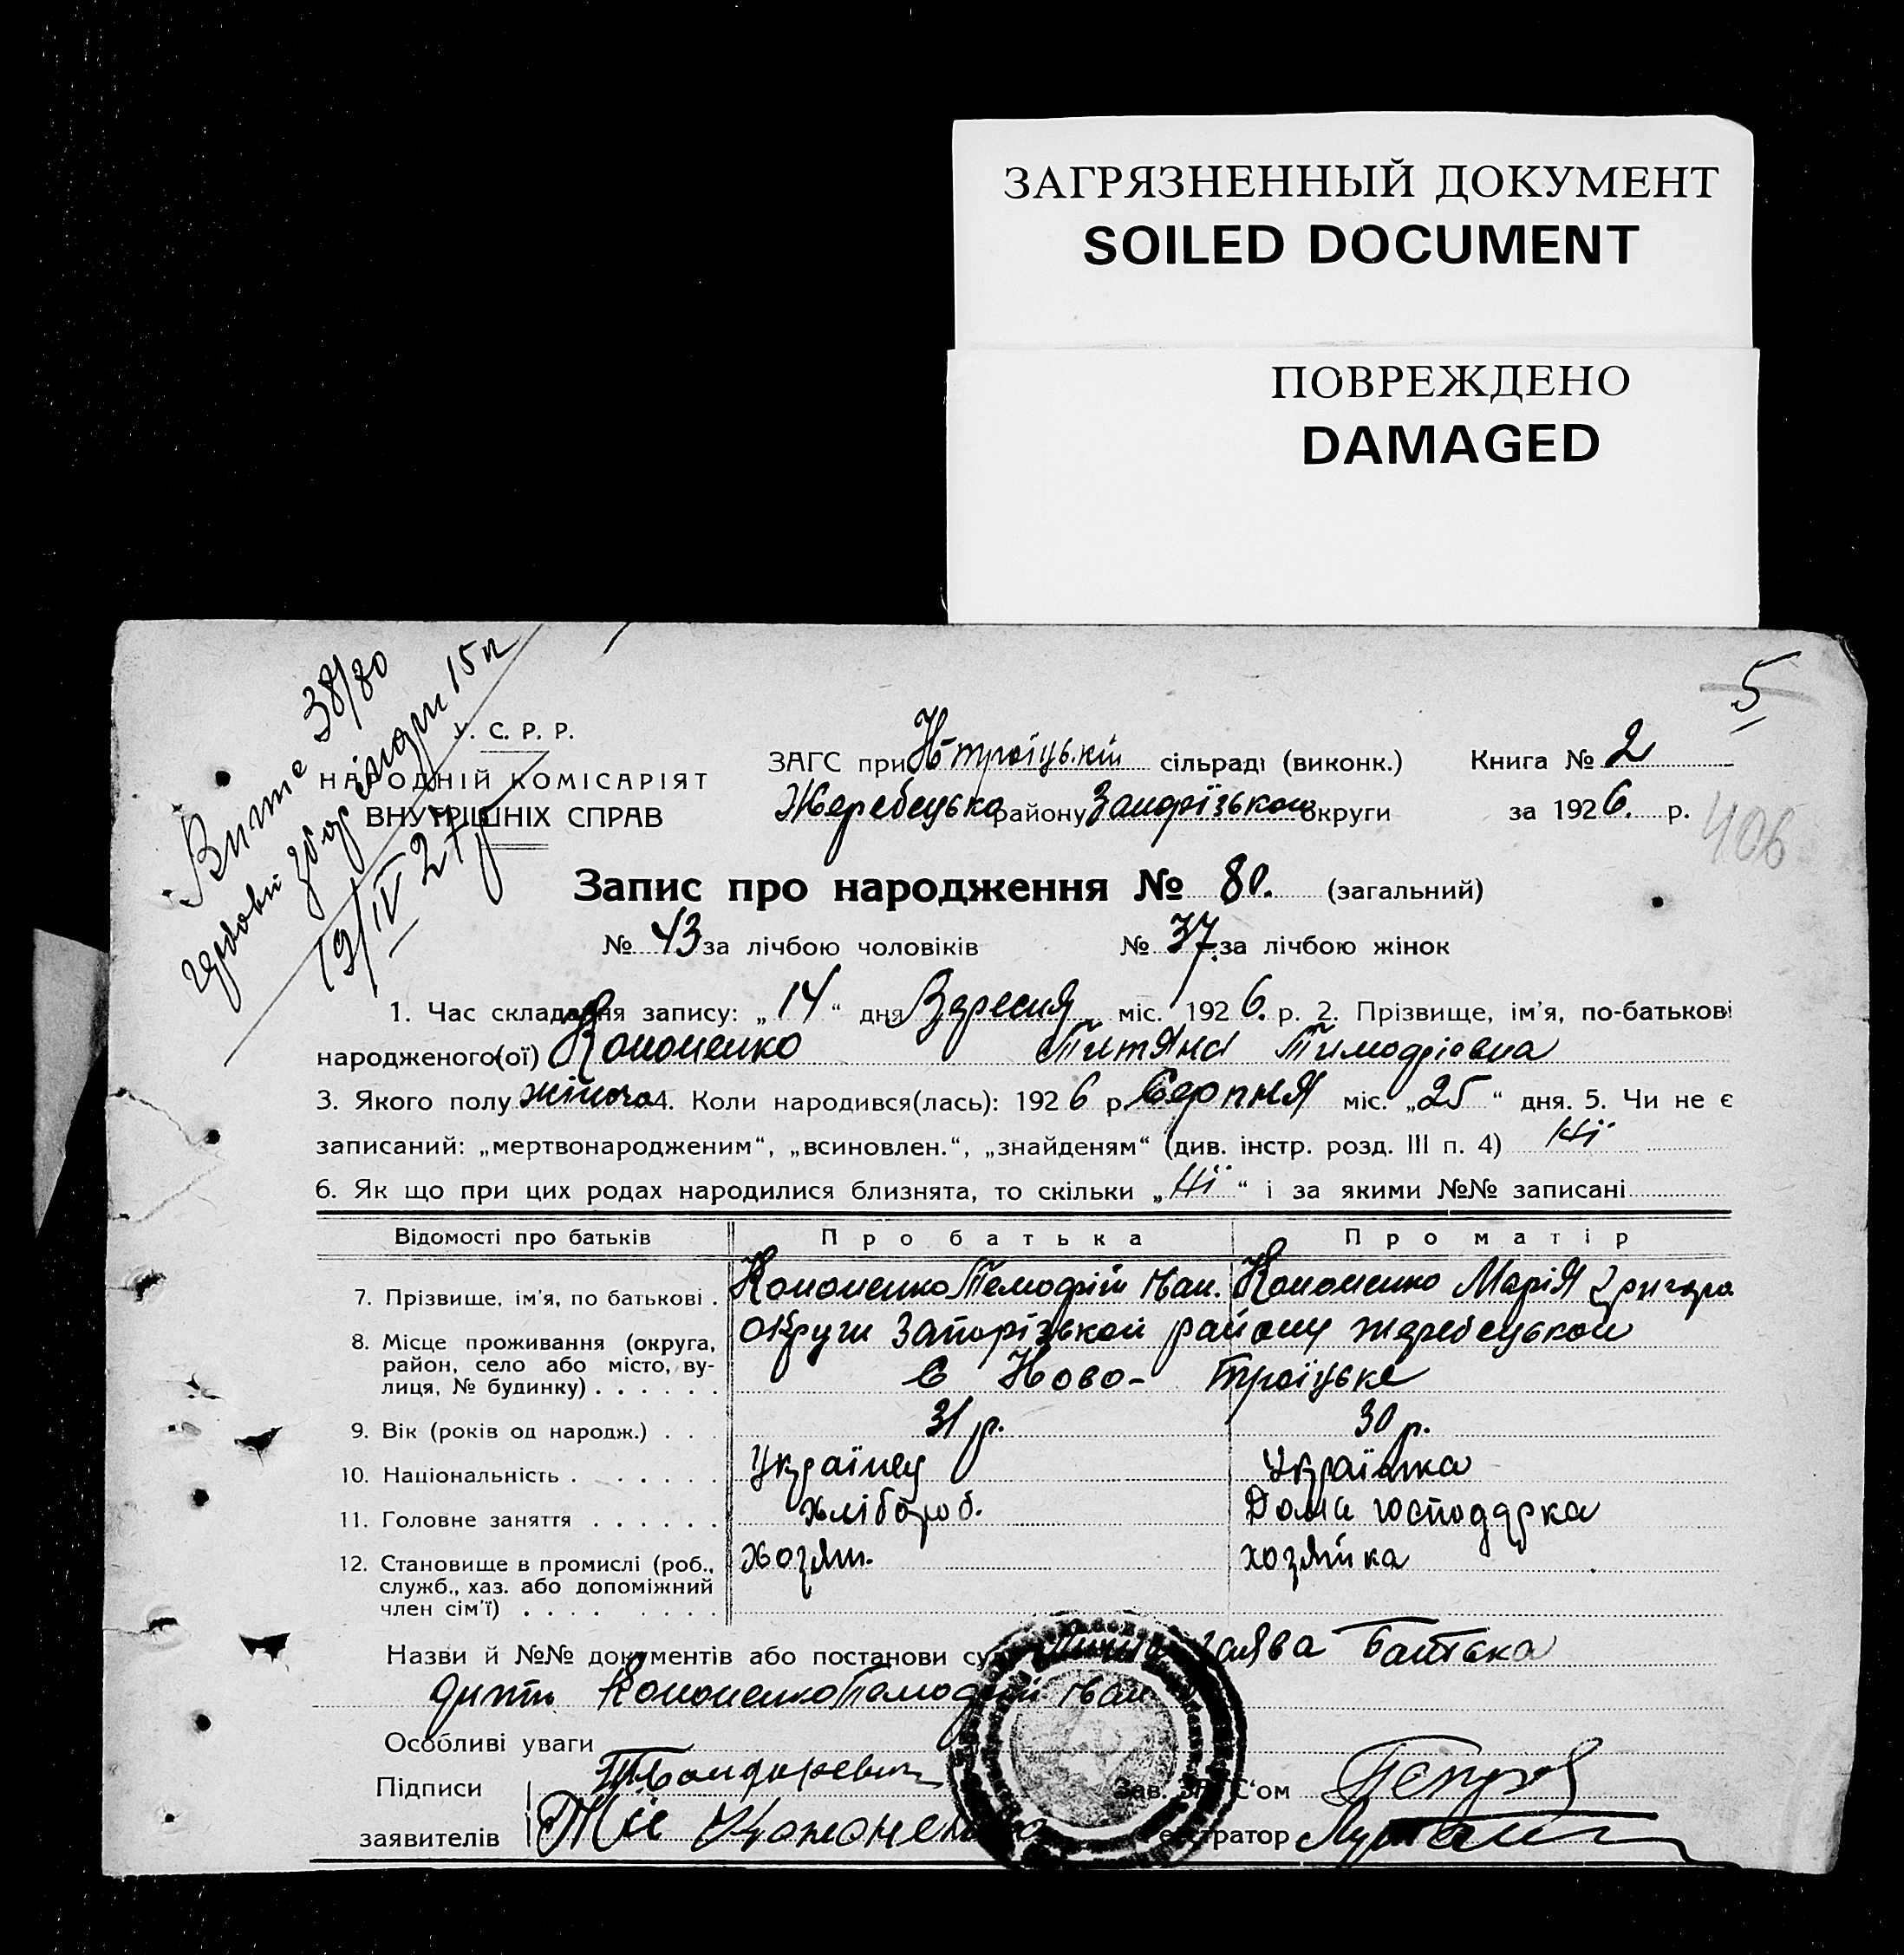 ЗАГРЯЗНЕННЫЙ ДОКУМЕНТ
SOILED DOCUMENT
ПОВРЕЖДЕНО
DAMAGED
5
38/80
15 к
19/IV 27 р
У. С. Р. Р.
НАРОДНІЙ КОМІСАРІЯТ
ВНУТРІШНІХ СПРАВ
ЗАГС при Н-троїцькій сільраді (виконк.) Книга № 2
Жеребецько району Запорізькои округи за 1926. р.
406
Запис про народження № 80. (загальний)
№ 43 за лічбою чоловіків № 37. за лічбою жінок
1. Час складання запису: „14“ дня Вересня міс. 1926. р. 2. Прізвище, ім'я, по-батькові
народженого(ої) Кононенко Титяна Тимофіевна
3. Якого полу жіночо 4. Коли народився(лась): 1926 р. Серпня міс. „25“ дня. 5. Чи не є
записаний: „мертвонародженим“, „всиновлен.“, „знайденям“ (див. інстр. розд. III п. 4) Ні
6. Як що при цих родах народилися близнята, то скільки „Ні“ і за якими №№ записані
Відомості про батьків Про батька Про матір
7. Прізвище, ім'я, по батькові . Кононенко Темофій Іван. Кононенко Марія Григора
8. Місце проживання (округа, район, село або місто, ву-лиця, № будинку) . . . . . . округи Запорізькой району жеребецькой
с Ново- Троїцьке
9. Вік (років од народж.) . . . 31 р. 30 р.
10. Національність . . . . . . Українец Українка
11. Головне заняття . . . . . . хлібороб. Дома господарка
12. Становище в промислі (роб., служб., хаз. або допоміжний член сім'ї) . . . . . . . . хозяін. хозяйка
Назви й №№ документів або постанови заява батька
дитти Кононенко Темофій Іван
Особливі уваги
Підписи Зав. ЗАГС'ом Петров
заявителів Кононенко Реєстратор